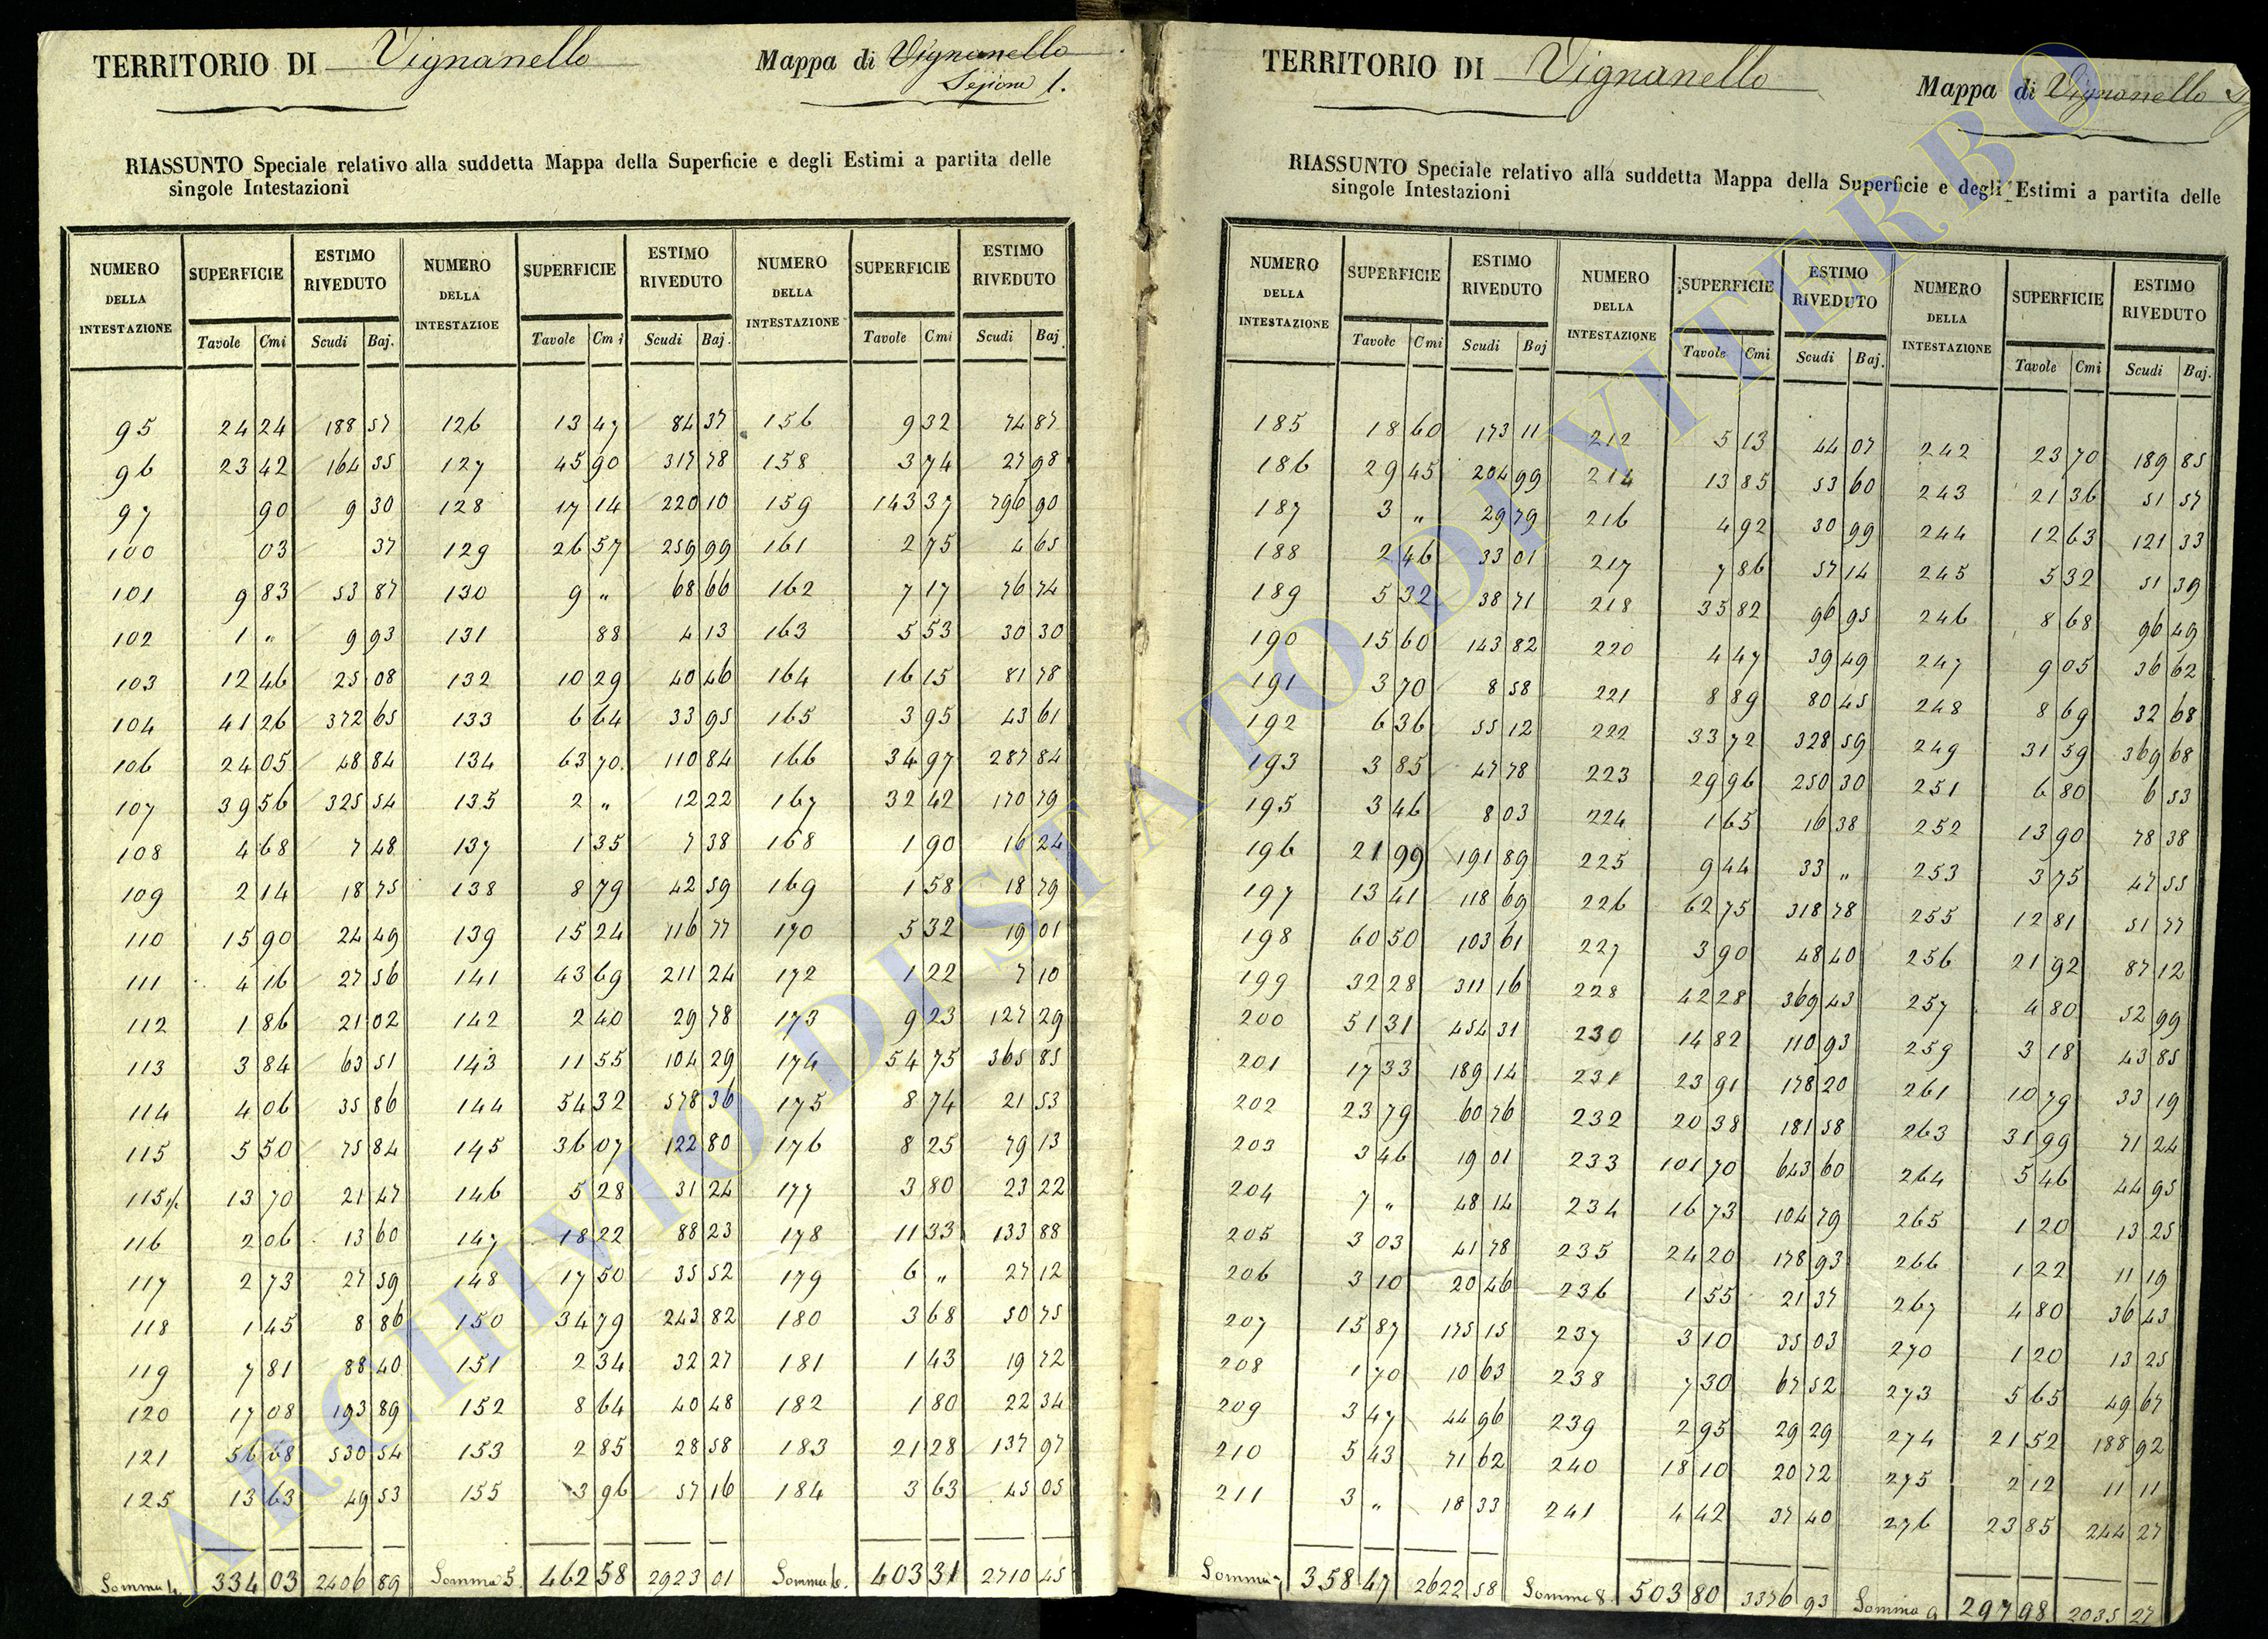 TERRITORIO DI Vignanello Mappa di Vignanello
Sezione 1.
RIASSUNTO Speciale relativo alla suddetta Mappa della Superficie e degli Estimi a partita delle
singole Intestazioni
NUMERO DELLA INTESTAZIONE SUPERFICIE ESTIMO RIVEDUTO NUMERO DELLA INTESTAZIOE SUPERFICIE ESTIMO RIVEDUTO NUMERO DELLA INTESTAZIONE SUPERFICIE ESTIMO RIVEDUTO
Tavole Cmi Scudi Baj. Tavole Cmi Scudi Baj. Tavole Cmi Scudi Baj.
95 24 24 188 57 126 13 47 84 37 156 9 32 74 87
96 23 42 164 35 127 45 90 317 78 158 3 74 27 98
97 90 9 30 128 17 14 220 10 159 143 37 796 90
100 03 37 129 26 57 259 99 161 2 75 4 65
101 9 83 53 87 130 9 " 68 66 162 7 17 76 74
102 1 " 9 93 131 88 4 13 163 5 53 30 30
103 12 46 25 08 132 10 29 40 46 164 16 15 81 78
104 41 26 372 65 133 6 64 33 95 165 3 95 43 61
106 24 05 48 84 134 63 70 110 84 166 34 97 287 84
107 39 56 325 54 135 2 " 12 22 167 32 42 170 79
108 4 68 7 48 137 1 35 7 38 168 1 90 16 24
109 2 14 18 75 138 8 79 42 59 169 1 58 18 79
110 15 90 24 49 139 15 24 116 77 170 5 32 19 01
111 4 16 27 56 141 43 69 211 24 172 1 22 7 10
112 1 86 21 02 142 2 40 29 78 173 9 23 127 29
113 3 84 63 51 143 11 55 104 29 174 54 75 365 85
114 4 06 35 86 144 54 32 578 36 175 8 74 21 53
115 5 50 75 84 145 36 07 122 80 176 8 25 79 13
115 13 70 21 47 146 5 28 31 24 177 3 80 23 22
116 2 06 13 60 147 18 22 88 23 178 11 33 133 88
117 2 73 27 59 148 17 50 35 52 179 6 " 27 12
118 1 45 8 86 150 34 79 243 82 180 3 68 50 75
119 7 81 88 40 151 2 34 32 27 181 1 43 19 72
120 17 08 193 89 152 8 64 40 48 182 1 80 22 34
121 56 68 530 54 153 2 85 28 58 183 21 28 137 97
125 13 63 49 53 155 3 96 57 16 184 3 63 45 05
Somma 4. 334 03 2406 89 Somma 5. 462 58 2923 01 Somma 6. 403 31 2710 45
TERRITORIO DI Vignanello Mappa di Vignanello
RIASSUNTO Speciale relativo alla suddetta Mappa della Superficie e degli Estimi a partita delle
singole Intestazioni
NUMERO DELLA INTESTAZIONE SUPERFICIE ESTIMO RIVEDUTO NUMERO DELLA INTESTAZIONE SUPERFICIE ESTIMO RIVEDUTO NUMERO DELLA INTESTAZIONE SUPERFICIE ESTIMO RIVEDUTO
Tavole Cmi Scudi Baj Tavole Cmi Scudi Baj. Tavole Cmi Scudi Baj.
185 18 60 173 11 212 5 13 44 07 242 23 70 189 85
186 29 45 204 99 214 13 85 53 60 243 21 36 51 57
187 3 " 29 79 216 4 92 30 99 244 12 63 121 33
188 2 46 33 01 217 7 86 57 14 245 5 32 51 39
189 5 32 38 71 218 35 82 96 95 246 8 68 96 49
190 15 60 143 82 220 4 47 39 49 247 9 05 36 62
191 3 70 8 58 221 8 89 80 45 248 8 69 32 68
192 6 36 55 12 222 33 72 328 59 249 31 59 369 68
193 3 85 47 78 223 29 96 250 30 251 6 80 6 53
195 3 46 8 03 224 1 65 16 38 252 13 90 78 38
196 21 99 191 89 225 9 44 33 " 253 3 75 47 55
197 13 41 118 69 226 62 75 318 78 255 12 81 51 77
198 60 50 103 61 227 3 90 48 40 256 21 92 87 12
199 32 28 311 16 228 42 28 369 43 257 4 80 52 99
200 51 31 454 31 230 14 82 110 93 259 3 18 43 85
201 17 33 189 14 231 23 91 178 20 261 10 79 33 19
202 23 79 60 76 232 20 38 181 58 263 31 99 71 24
203 3 46 19 01 233 101 70 643 60 264 5 46 44 95
204 7 " 48 14 234 16 73 104 79 265 1 20 13 25
205 3 03 41 78 235 24 20 178 93 266 1 22 11 19
206 3 10 20 46 236 1 55 21 37 267 4 80 36 43
207 15 87 175 15 237 3 10 35 03 270 1 20 13 25
208 1 70 10 63 238 7 30 67 52 273 5 65 49 67
209 3 47 44 96 239 2 95 29 29 274 21 52 188 92
210 5 43 71 62 240 18 10 20 72 275 2 12 11 11
211 3 " 18 33 241 4 42 37 40 276 23 85 244 27
Somma 7 358 47 2622 58 Somma 8. 503 80 3376 93 Somma 9 297 98 2035 27
ARCHIVIO DI STATO DI VITERBO